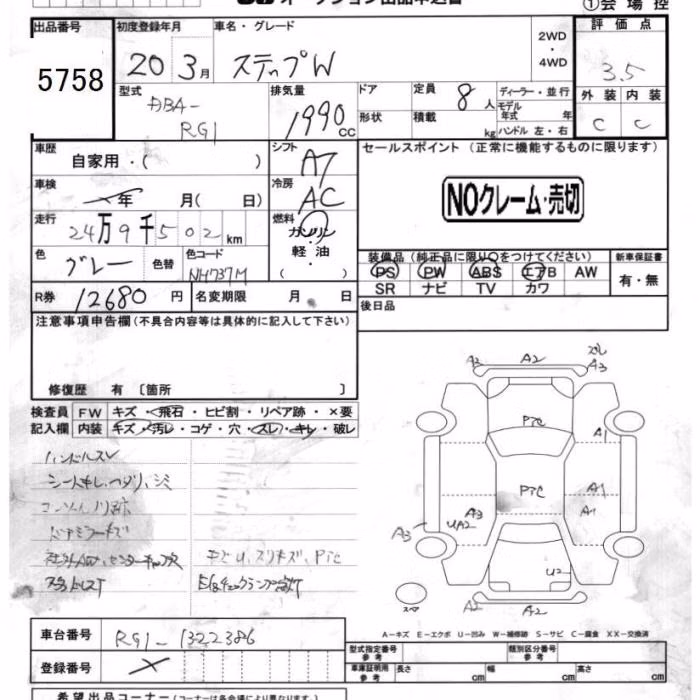 オークション出品申込書
①会場控
出品番号
初度登録年月
車名・グレード
2WD
・
4WD
評価点
5758
20 3月
ステップW
3.5
型式
排気量
ドア
定員
8人
ディーラー・並行
外装
内装
DBA-
RG1
1990cc
形状
積載
kg
モデル年式 年
ハンドル 左・右
C
C
車歴
自家用・( )
シフト
AT
セールスポイント (正常に機能するものに限ります)
車検
年 月( 日)
冷房
AC
NOクレーム・売切
走行
24万9千502km
燃料
ガソリン
軽油
・( )
色
グレー
色替
色コード
NH737M
装備品(純正品に限り○をつけてください)
新車保証書
PS PW ABS エアB AW
SR ナビ TV カワ
有・無
R券
12680円
名変期限 月 日
後日品
注意事項申告欄(不具合内容等は具体的に記入して下さい)
修復歴 有〔箇所 〕
検査員
記入欄
FW キズ・飛石・ヒビ割・リペア跡・×要
内装 キズ・汚レ・コゲ・穴・スレ・キレ・破レ
ハンドルスレ
シートキレ、ヘタリ、シミ
ドアミラーキズ
キズU、スリキズ、PTC
A2 A2 A3
PTC
A1
PTC
A1
A1
A3
UA2
A3
U2
A2 A2
スペア
A-キズ E-エクボ U-凹み W-補修跡 S-サビ C-腐食 XX-交換済
車台番号
RG1-1322386
登録番号
型式指定番号 参考
類別区分番号 参考
車庫証明用 参考
長さ cm
幅 cm
高さ cm
希望出品コーナー(コーナーは各会場により異なります)